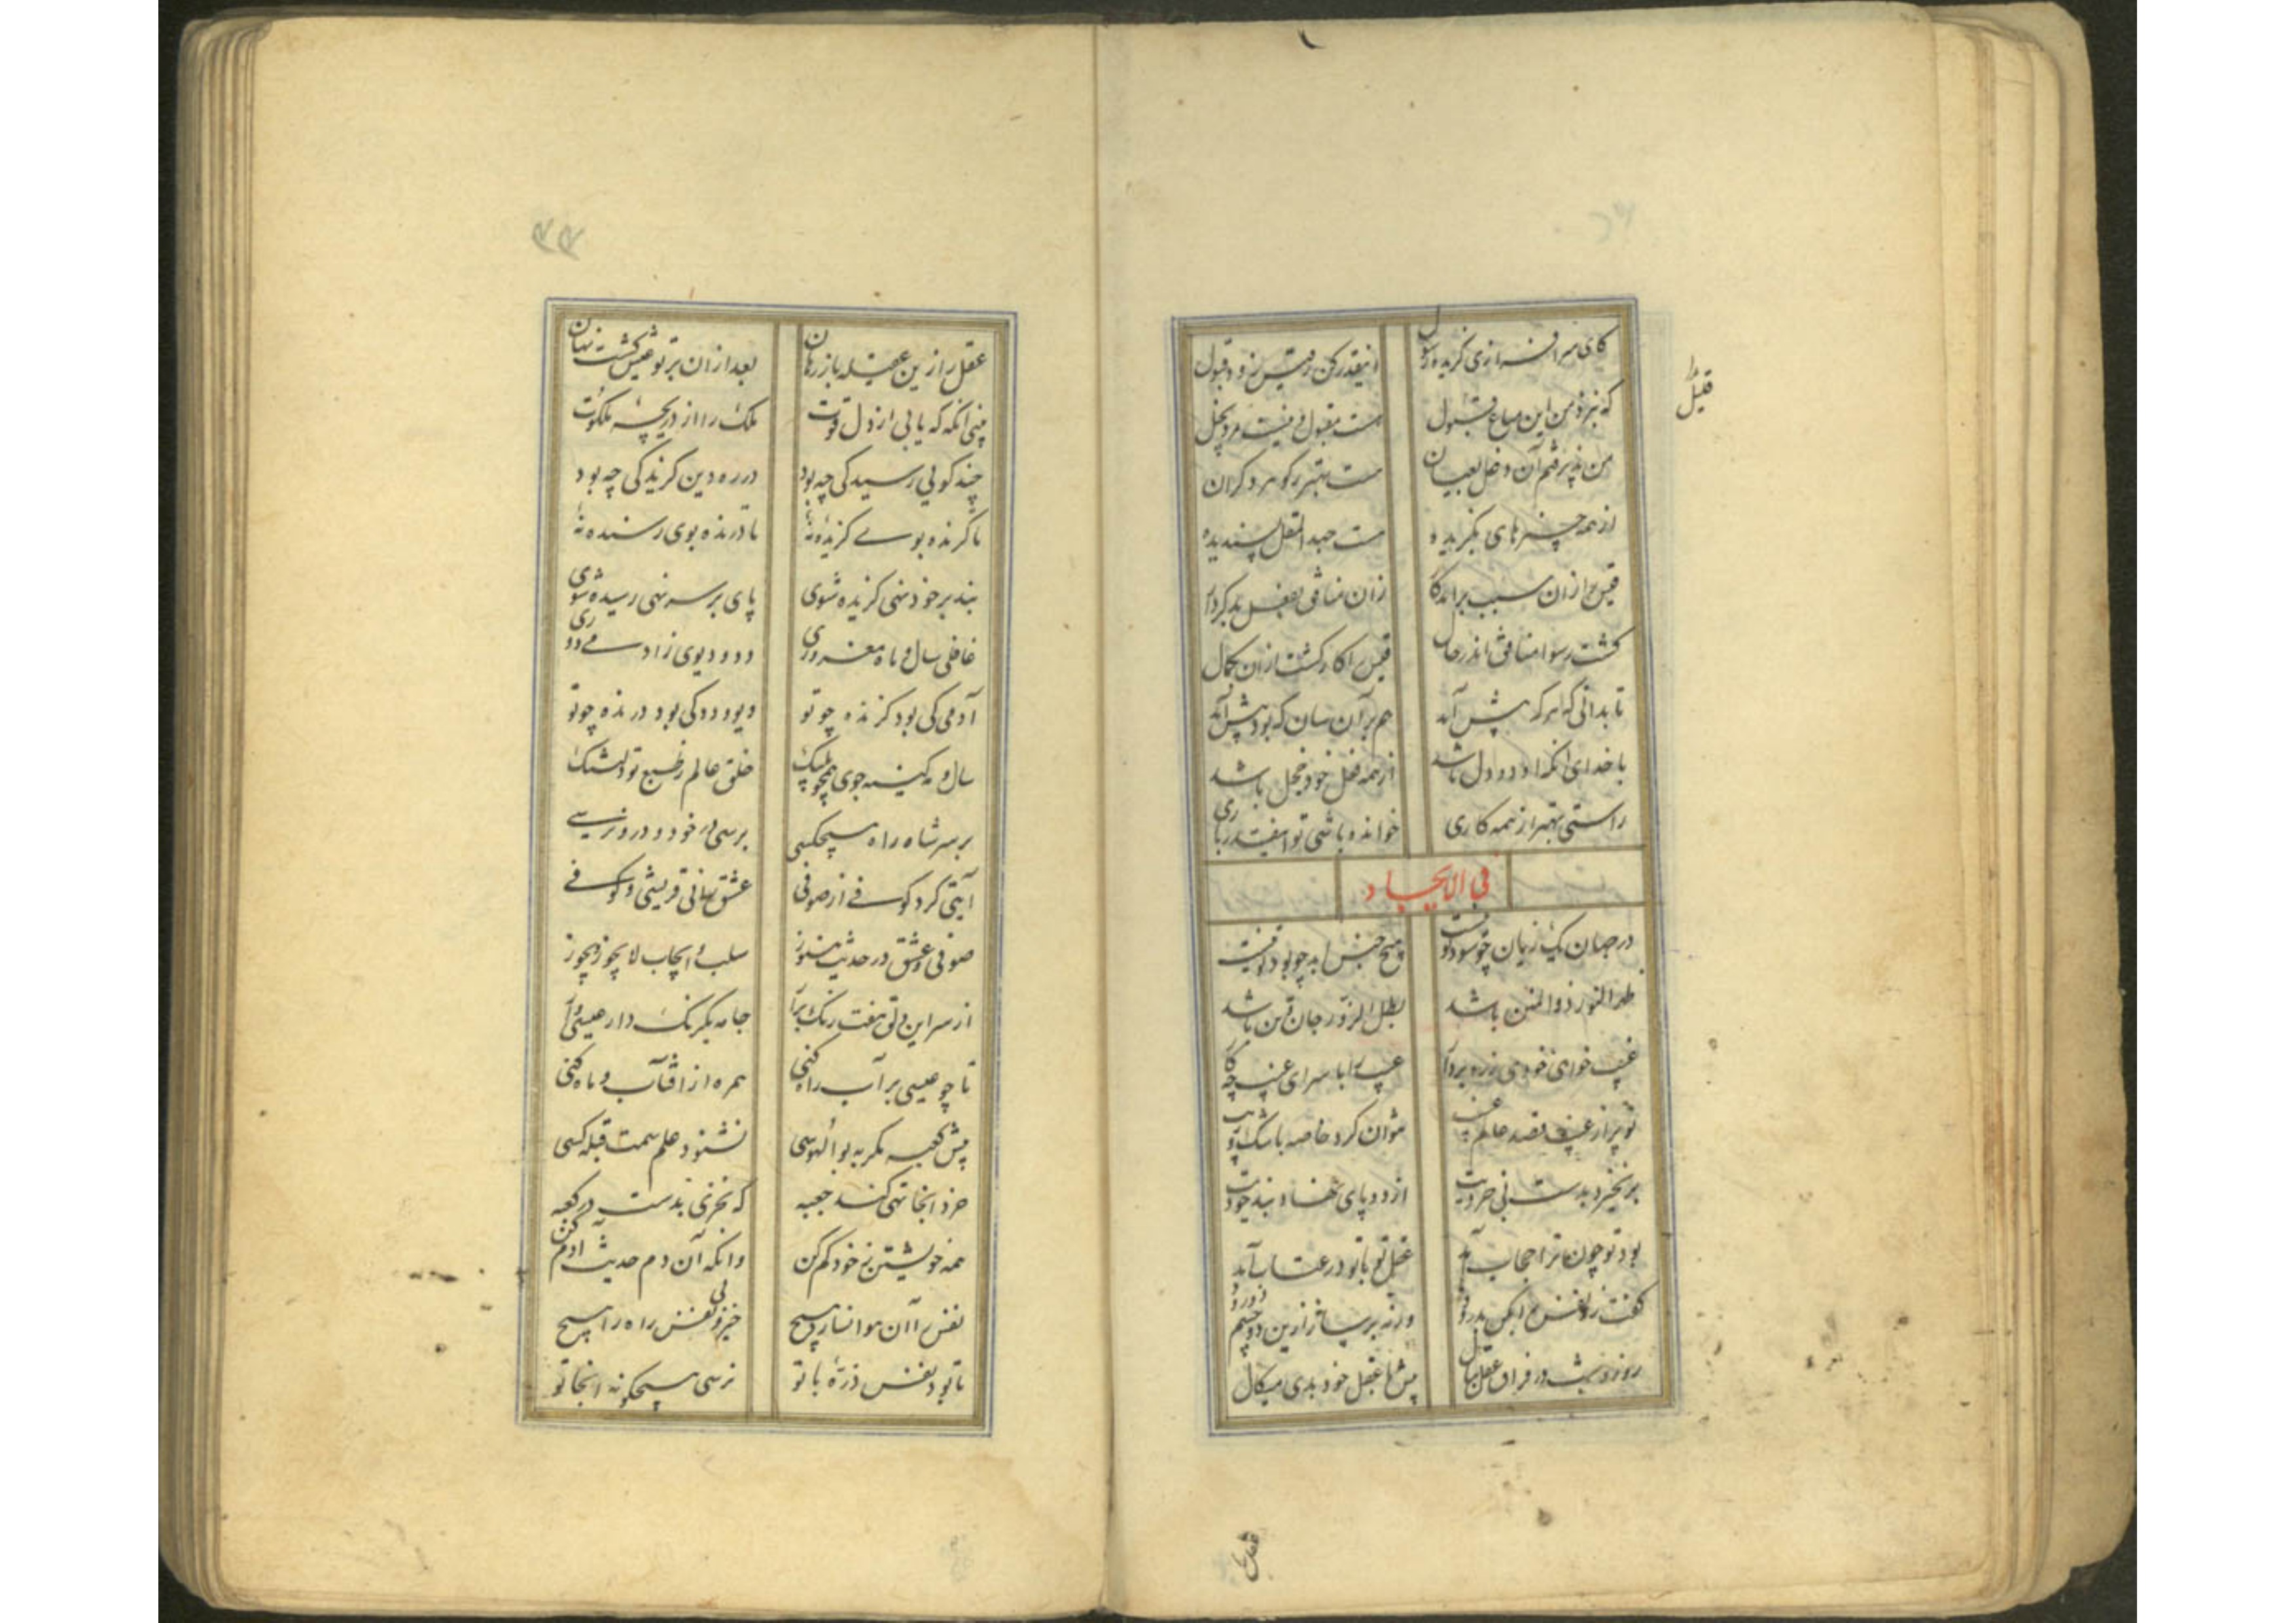 کای سرافراز وی گزیده رسول اینقدر کن ز قیس زود قبول
قلیل را
که پذیرفتم این متاع قلیل
من پذیرفتم آن دخل بعیان
از همه چیزهای بگزیده هست جهد المقل پسندیده
قیس را زان سبب برآمد کار زان منافق بفعل بد کردار
گشت رسوا منافق اندر حال قیس را کار گشت ازان بکمال
تا بدانی که هر که پیش آید هم بر آن سان که بود پیش آید
با خدای آنکه او دو دل باشد از همه فعل خود خجل باشد
راستی بهتر از همه کاری خوانده باشی تو اینقدر باری
فی الایجاد
در جهان یک زیان چو سود تو نیست هیچ حبس ابد چو بود تو نیست
ظهر النور ذوالمنن باشد بطل الزور جان و تن باشد
غیب خواهی خودی ز ره بردار عیب را با سرای غیب چه کار
تو پر از عیب و قصد عالم غیب نتوان کرد خاصه با شک و ریب
بر نخیزد بدست بی خردیت از دو پای نهاد بند خودیت
بود تو چون ترا حجاب آید عقل تو با تو در عتاب آید
گفت زو نفس را بکن بدرود ورنه بر ساز ازین دو چشم دو رود
روز و شب در فراق عقل بنال پیش با عقل خود بدی مسگال
عقل را
عقل را زین عقیله باز رهان بعد از آن بر تو عیش گشت نهان
بینی آنگه که یابی از دل قوت ملک را از دریچه ملکوت
چند گویی رسیدگی چه بود در ره دین گزیدگی چه بود
تا گزنده بوی گزیده نه تا درنده بوی رسنده نه
بند بر خود نهی گزیده شوی پای بر سر نهی رسیده شوی
غافلی سال و ماه مغروری دد و دیوی ز آدمی دوری
آدمی کی بود گزنده چو تو دیو و دد کی بود درنده چو تو
سال و مه کینه جوی همچو پلنگ خلق عالم ز طبع تو دلتنگ
بر سر شاه راه هیچکسی برسی در خود و درو نرسی
آیتی کرد کوفی از صوفی عشق سانی قریشی و کوفی
صوفی و عشق در حدیث هنوز سلب و ایجاب لا یجوز و یجوز
از سر این دلق هفت رنگ برآر جامه یکرنگ دار عیسی وار
تا چو عیسی بر آب راه کنی همره از آفتاب و ماه کنی
پیش کعبه مگر به بوالهوسی نشنود علم سمت قبله کسی
خرد اینجا تهی کند جعبه که تحری بدست در کعبه
همه خویشتن ز خود کم کن وانگه آن دم حدیث آدم کن
نفس را آن هوا نسازد هیچ خیز و بی نفس راه را بپسیچ
تا بود نفس ذره با تو نرسی هیچگونه آنجا تو